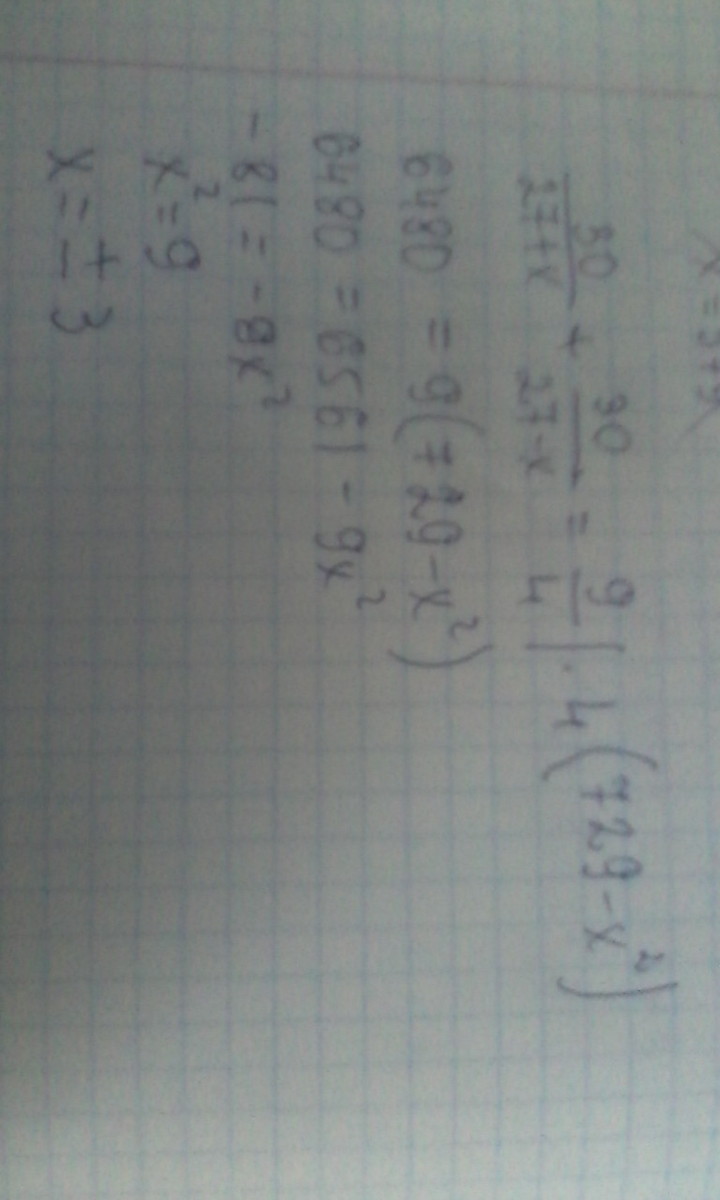 30/27+x + 30/27-x = 9/4 | · 4(729-x²)
6480 = 9(729-x²)
6480 = 6561 - 9x²
-81 = -9x²
x² = 9
x = ± 3